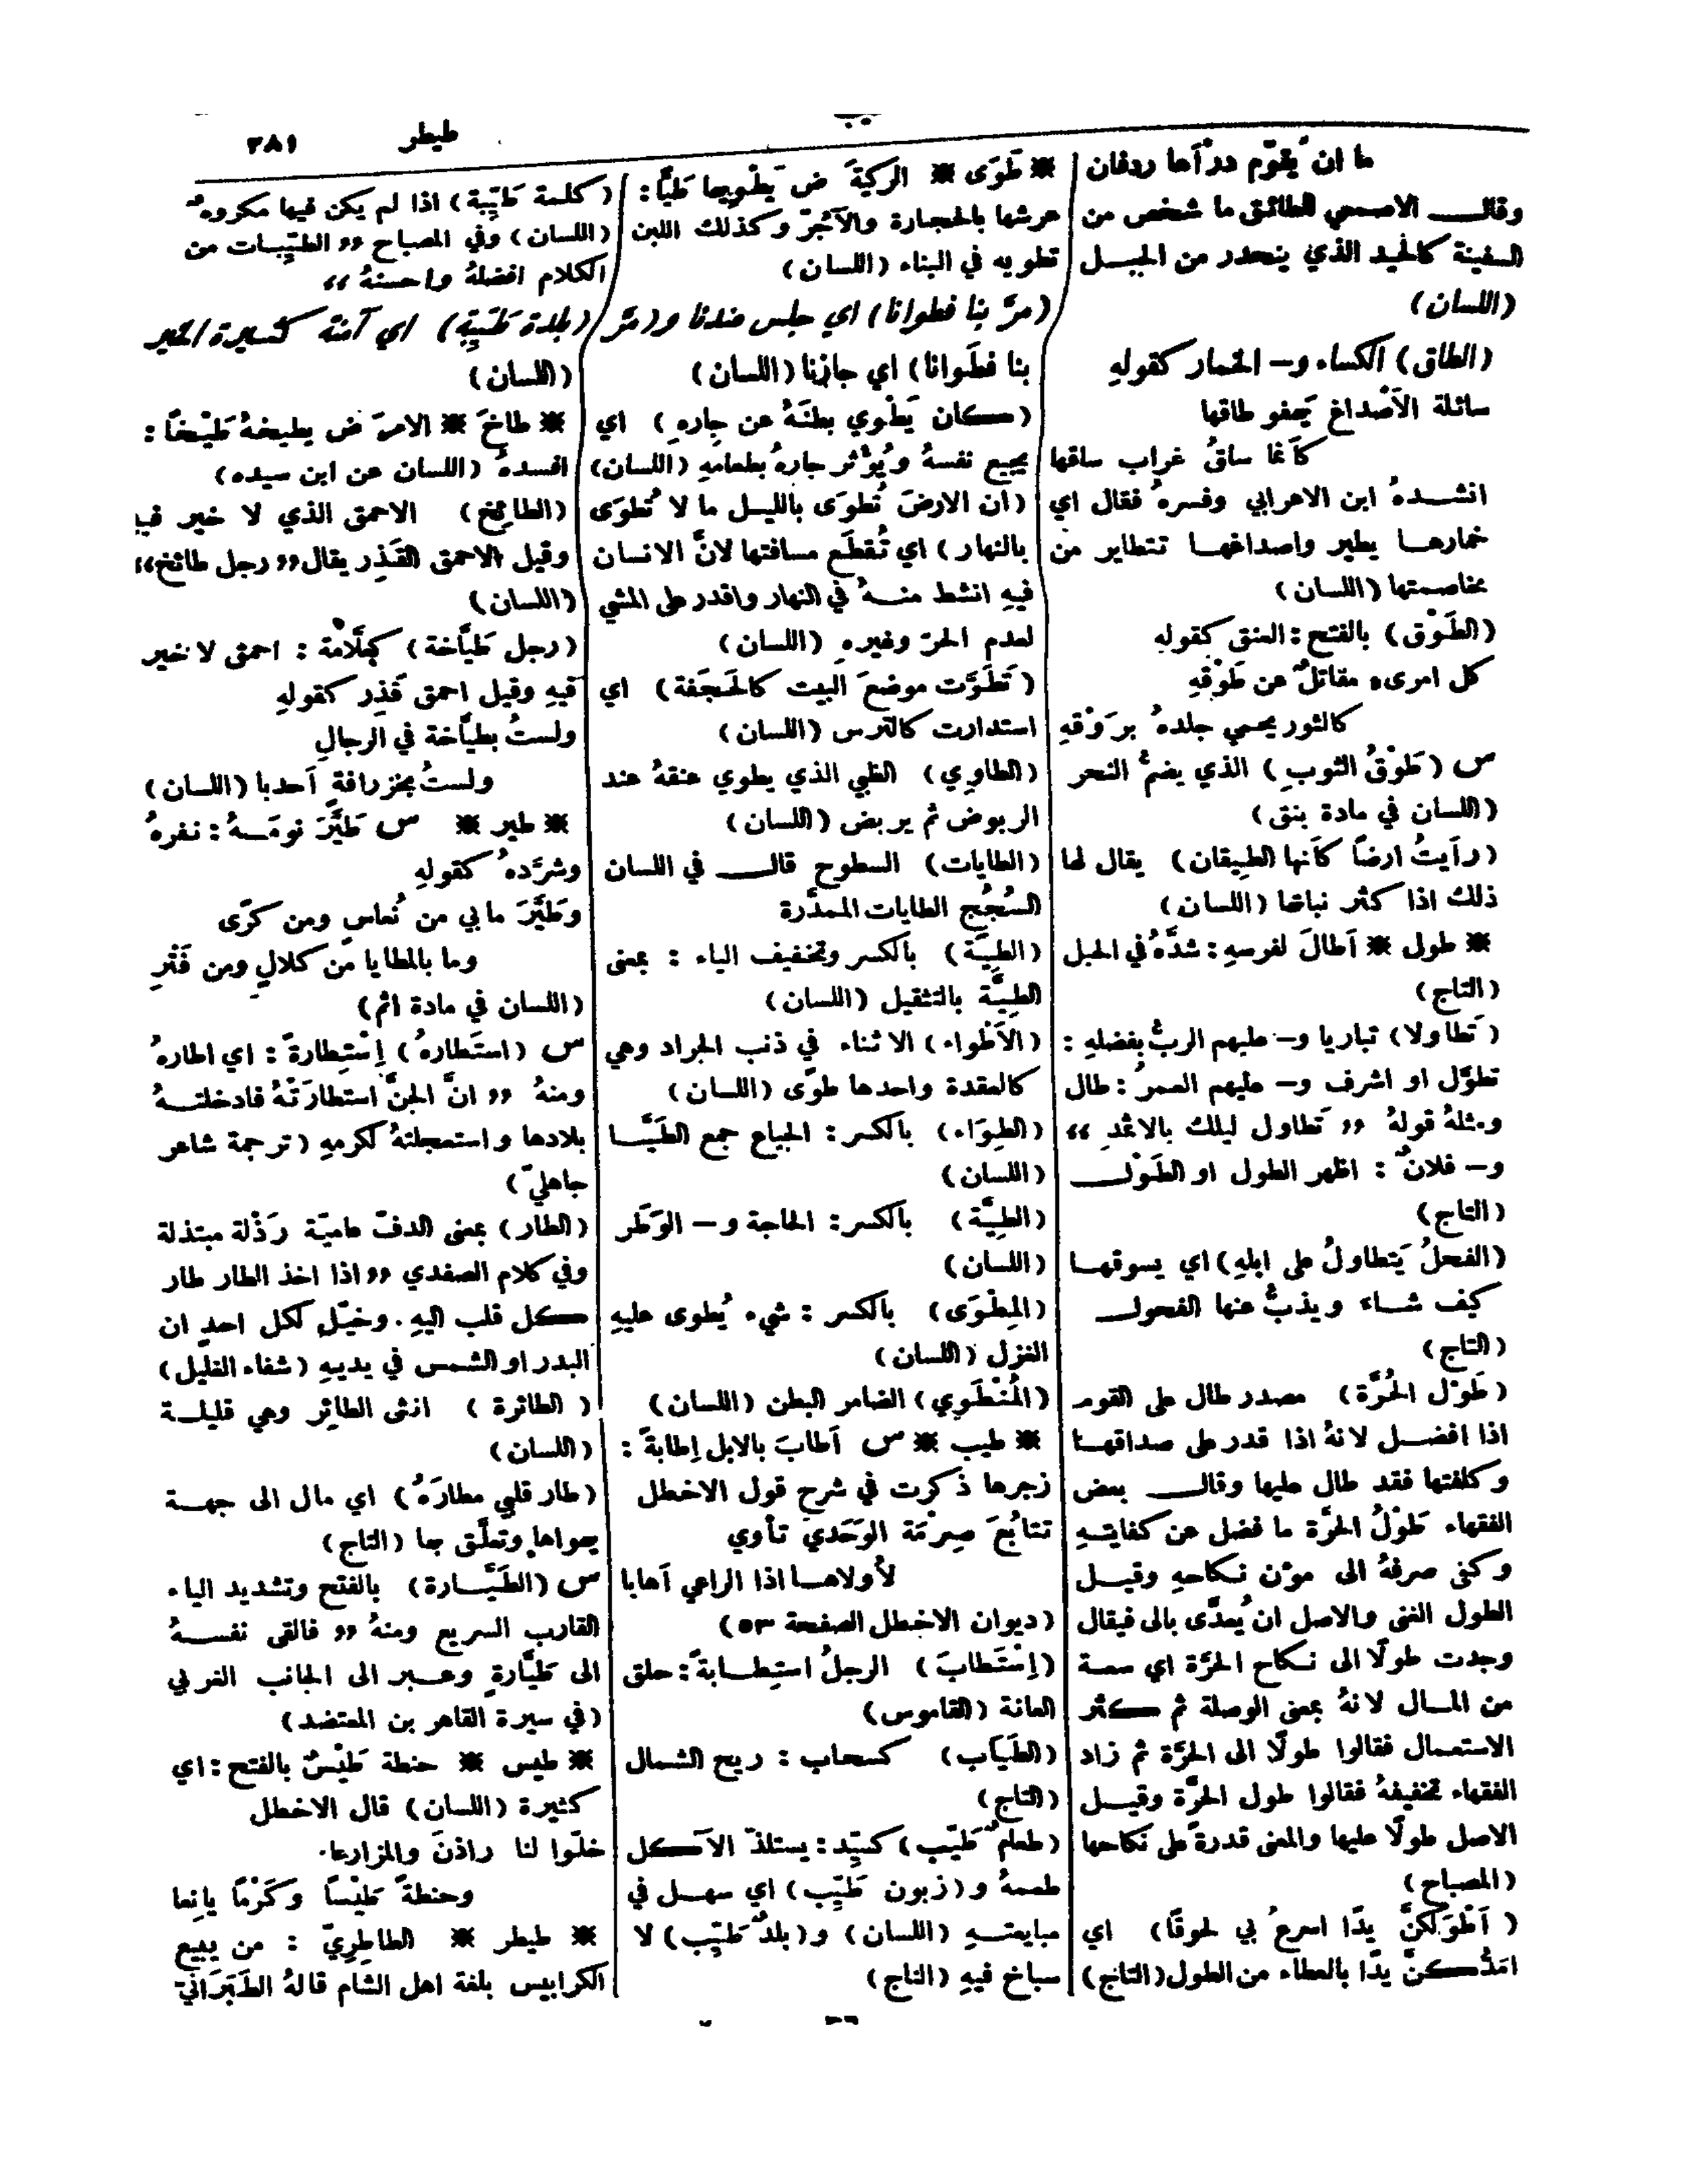 طيطر
٣٨١
ما ان يقوّم درْأها ردفان
وقال الاصمعي الطائق ما شخص من
السفينة كالحيد الذي ينحدر من الجبل
(اللسان)
(الطاق) الكساء و– الخمار كقولهِ
سائلة الاَصْداغ يَهفو طاقها
كأنما ساقُ غراب ساقها
انشدهُ ابن الاعرابي وفسرهُ فقال اي
خمارها يطير واصداغها تتطاير من
مخاصمتها (اللسان)
(الطَوْق) بالفتح: العنق كقوله
كل امرىء مقاتلٌ عن طَوْقهِ
كالثور يحمي جلدهُ برَوْقهِ
س (طَوْقُ الثوبِ) الذي يضمُّ النحر
(اللسان في مادة بنق)
(رأَيتُ ارضاً كأَنها الطِيقان) يقال لها
ذلك اذا كثر نباتها (اللسان)
※ طول ※ اَطالَ لفرسهِ: شدَّهُ في الحبل
(التاج)
(تَطاولا) تباريا و– عليهم الربُّ بفضلهِ:
تطوَّل او اشرف و– عليهم العمرُ: طال
ومثلهُ قولهُ «تَطاول ليلك بالاثمد»
و– فلانٌ: اظهر الطول او الطَوْل
(التاج)
(الفحلُ يَتطاولُ على ابلهِ) اي يسوقها
كيف شاء ويذبُّ عنها الفحول
(التاج)
(طَوْل الحُرَّة) مصدر طال على القوم
اذا افضل لانهُ اذا قدر على صداقها
وكلفتها فقد طال عليها وقال بعض
الفقهاء طَوْلُ الحرَّة ما فضل عن كفايتهِ
وكفى صرفهُ الى مؤن نكاحهِ وقيل
الطول الغنى والاصل ان يُعدَّى بالى فيقال
وجدت طولًا الى نكاح الحرَّة اي سعة
من المال لانهُ بمعنى الوصلة ثم كثر
الاستعمال فقالوا طولًا الى الحرَّة ثم زاد
الفقهاء تخفيفهُ فقالوا طول الحرَّة وقيل
الاصل طولًا عليها والمعنى قدرةً على نكاحها
(المصباح)
(اَطْوَلكنَّ يدًا اسرعُ بي لحوقًا) اي
امَدُّكنَّ يدًا بالعطاء من الطول (التاج)
※ طَوَى ※ الركيةَ ض يَطْوِيها طَيًّا:
عرشها بالحجارة والآجُرّ وكذلك اللبن
تطويه في البناء (اللسان)
(مرَّ بنا فطوانا) اي جلس عندنا و(مرَّ
بنا فطَوانا) اي جازنا (اللسان)
(كان يَطْوي بطنَهُ عن جارهِ) اي
يجيع نفسهُ ويُؤْثر جارهُ بطعامهِ (اللسان)
(ان الارضَ تُطوَى بالليل ما لا تُطوَى
بالنهار) اي تُقطَع مسافتها لانَّ الانسان
فيهِ انشط منهُ في النهار واقدر على المشي
لعدم الحرّ وغيرهِ (اللسان)
(تَطَوَّت موضعَ البيت كالحَجَفة) اي
استدارت كالترس (اللسان)
(الطاوِي) الظبي الذي يطوي عنقهُ عند
الربوض ثم يربض (اللسان)
(الطايات) السطوح قال في اللسان
السُجُج الطايات الممدَّرة
(الطِيَة) بالكسر وتخفيف الياء: بمعنى
الطِيَّة بالتثقيل (اللسان)
(الاَطْواء) الاثناء في ذنب الجراد وهي
كالعقدة واحدها طوًى (اللسان)
(الطِوَاء) بالكسر: الجياع جمع الطَيَّا
(اللسان)
(الطِيَّة) بالكسر: الحاجة و– الوَطَر
(اللسان)
(المِطْوَى) بالكسر: شيء يُطوى عليهِ
الغزل (اللسان)
(المُنْطَوِي) الضامر البطن (اللسان)
※ طيب ※ س اَطابَ بالابل إِطابةً:
زجرها ذكرت في شرح قول الاخطل
تتابُعَ صِرْمَة الوَحَدي تأوي
لأُولاها اذا الراعي اَهابا
(ديوان الاخطل الصفحة ٥٣)
(اِسْتَطابَ) الرجلُ استِطابةً: حلق
العانة (القاموس)
(الطَيَاب) كسحاب: ريح الشمال
(التاج)
(طعامٌ طَيّب) كسيِّد: يستلذّ الآكل
طعمهُ و(زبون طَيِّب) اي سهل في
مبايعتهِ (اللسان) و(بلدٌ طَيِّب) لا
سباخ فيهِ (التاج)
(كلمة طَيِّبة) اذا لم يكن فيها مكروهٌ
(اللسان) وفي المصباح «الطيِّبات من
الكلام افضلهُ واحسنهُ»
(بلدة طَيِّبة) اي آمنة كثيرة الخير
(اللسان)
※ طاخَ ※ الامرَ ض يطيخهُ طَيْخًا:
افسدهُ (اللسان عن ابن سيده)
(الطائِخ) الاحمق الذي لا خير فيهِ
وقيل الاحمق القَذِر يقال «رجل طائخ»
(اللسان)
(رجل طَيَّاخة) كعَلَّامة: احمق لا خير
فيهِ وقيل احمق قَذِر كقولهِ
ولستُ بطيَّاخة في الرجالِ
ولستُ بخزرافةٍ اَحدبا (اللسان)
※ طير ※ س طَيَّرَ نومَهُ: نفرهُ
وشرَّدهُ كقولهِ
وطَيَّرَ ما بي من نُعاسٍ ومن كرًى
وما بالمطايا من كلالٍ ومن فَتْرِ
(اللسان في مادة اثم)
س (استَطارهُ) إِسْتِطارةً: اي اطارهُ
ومنهُ «انَّ الجنَّ استطارَتْهُ فادخلتهُ
بلادها واستعجلتهُ لكرمهِ (ترجمة شاعر
جاهليّ)
(الطار) بمعنى الدفّ عاميّة رَذْلة مبتذلة
وفي كلام الصفدي «اذا اخذ الطار طار
كل قلب اليهِ. وخيّل لكل احدٍ ان
البدر او الشمس في يديهِ (شفاء الغليل)
(الطائرة) انثى الطائِر وهي قليلة
(اللسان)
(طار قلبي مطارَهُ) اي مال الى جهة
يهواها وتعلَّق بها (التاج)
س (الطَيَّارة) بالفتح وتشديد الياء
القارب السريع ومنهُ «فالقى نفسهُ
الى طَيَّارةٍ وعبر الى الجانب الغربي
(في سيرة القاهر بن المعتضد)
※ طيس ※ حنطة طَيْسٌ بالفتح: اي
كثيرة (اللسان) قال الاخطل
خلّوا لنا راذنَ والمزارعا.
وحنطةً طَيْسًا وَكَرْمًا يانِعا
※ طيطر ※ الطاطِرِيّ: من يبيع
الكرابيس بلغة اهل الشام قالهُ الطَبَرَانيّ